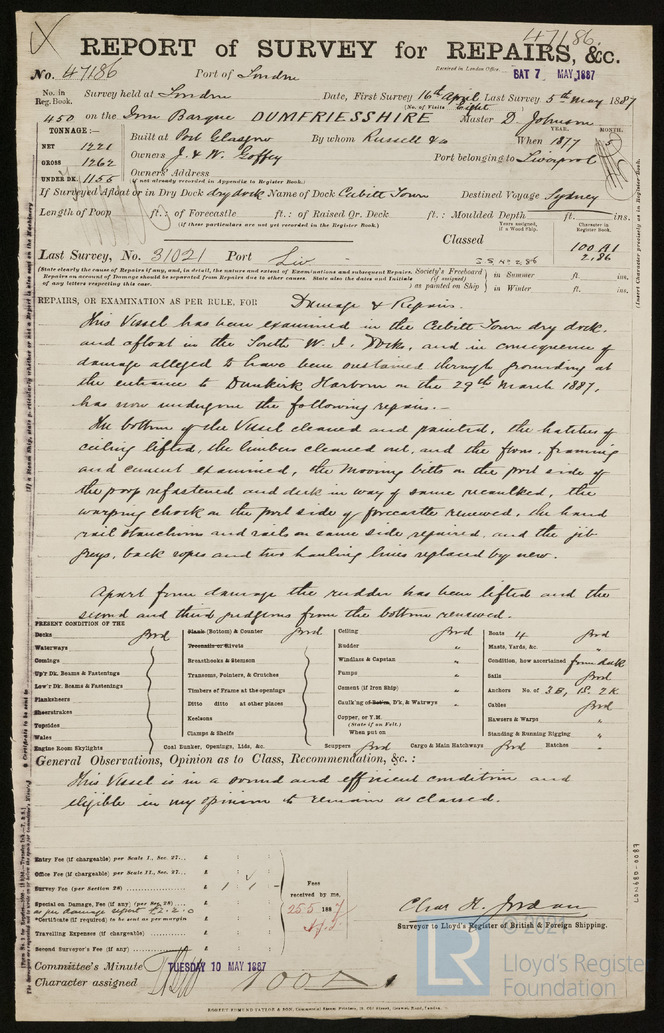 47186
REPORT of SURVEY for REPAIRS, &c.
No. 47186 Port of London Received in London Office, SAT 7 MAY 1887
No. in Reg. Book. Survey held at London Date, First Survey 16th April Last Survey 5th May 1887
(No. of Visits Eight)
450 on the Iron Barque DUMFRIESSHIRE Master D. Johnson
TONNAGE:— YEAR. MONTH.
NET 1221 Built at Port Glasgow By whom Russell & Co When 1877
GROSS 1262 Owners J. & W. Goffey Port belonging to Liverpool
UNDER DK. 1155 Owners' Address
(if not already recorded in Appendix to Register Book.)
If Surveyed Afloat or in Dry Dock dry dock Name of Dock Cubitt Town Destined Voyage Sydney
Length of Poop ft.: of Forecastle ft.: of Raised Qr. Deck ft.: Moulded Depth ft. ins.
(if these particulars are not yet recorded in the Register Book.)
Years assigned, if a Wood Ship. Character in Register Book.
Classed 100 A1
2,86
Last Survey, No. 31021 Port Liv
S.S. No 2. 86
(State clearly the cause of Repairs if any, and, in detail, the nature and extent of Examinations and subsequent Repairs. Repairs on account of Damage should be separated from Repairs due to other causes. State also the dates and Initials of any letters respecting this case.
Society's Freeboard (if assigned) as painted on Ship in Summer ft. ins.
in Winter ft. ins.
(Insert Character precisely as in Register Book.
REPAIRS, OR EXAMINATION AS PER RULE, FOR Damage & Repairs.
This Vessel has been examined in the Cubitt Town dry dock,
and afloat in the South W. I. Docks, and in consequence of
damage alleged to have been sustained through grounding at
the entrance to Dunkirk Harbour on the 29th March 1887,
has now undergone the following repairs:—
The bottom of the Vessel cleaned and painted, the hatches of
ceiling lifted, the limbers cleaned out, and the floors, framing
and cement examined, the mooring bitts on the port side of
the poop refastened and deck in way of same recaulked, the
warping chock on the port side of forecastle renewed, the hand
rail stanchions and rails on same side repaired, and the jib
guys, back ropes and two hauling lines replaced by new.
Apart from damage the rudder has been lifted and the
second and third gudgeons from the bottom renewed.
PRESENT CONDITION OF THE
Decks Good
Waterways
Comings
Up'r Dk. Beams & Fastenings
Low'r Dk. Beams & Fastenings
Planksheers
Sheerstrakes
Topsides
Wales
Engine Room Skylights
Plank (Bottom) & Counter Good
Treenails or Rivets
Breasthooks & Stemson
Transoms, Pointers, & Crutches
Timbers of Frame at the openings
Ditto ditto at other places
Keelsons
Clamps & Shelfs
Coal Bunker, Openings, Lids, &c.
Ceiling Good
Rudder "
Windlass & Capstan "
Pumps "
Cement (if Iron Ship) "
Caulk'ng of Bot'm, D'k, & Watrwys "
Copper, or Y.M.
(State if on Felt.)
When put on
Scuppers Good Cargo & Main Hatchways Good Hatches "
Boats 4 Good
Masts, Yards, &c. "
Condition, how ascertained from deck
Sails Good
Anchors No. of 3 B, 1 S. 2 K
Cables Good
Hawsers & Warps "
Standing & Running Rigging "
General Observations, Opinion as to Class, Recommendation, &c.:
This Vessel is in a sound and efficient condition and
eligible in my opinion to remain as classed.
Entry Fee (if chargeable) per Scale I., Sec. 27... £
Office Fee (if chargeable) per Scale II., Sec. 27... £
Survey Fee (per Section 28) £ 1 : 1
Special or Damage, Fee (if any) (per Sec. 28) £
as per damage report £2.2.0
*Certificate (if required) to be sent as per margin
Travelling Expenses (if chargeable) £
Second Surveyor's Fee (if any) £
Fees received by me,
25 5 1887
Chas H. Jordan
Surveyor to Lloyd's Register of British & Foreign Shipping.
Committee's Minute TUESDAY 10 MAY 1887
Character assigned 100 A 1
LON480-0087
© 2021
LR
Lloyd's Register
Foundation
ROBERT EDMUND TAYLOR & SON,